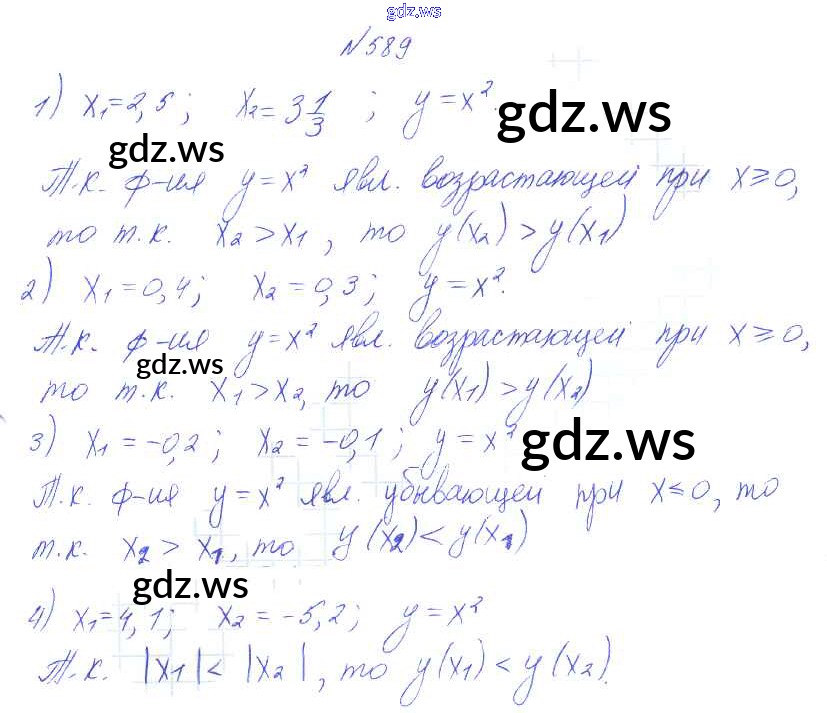 gdz.ws
N 589
1) x₁=2,5; x₂=3 1/3; y=x². gdz.ws
gdz.ws
Т.к. ф-ия y=x² явл. возрастающей при x≥0,
то т.к. x₂>x₁, то y(x₂)>y(x₁)
2) x₁=0,4; x₂=0,3; y=x².
Т.к. ф-ия y=x² явл. возрастающей при x≥0,
gdz.ws
то т.к. x₁>x₂, то y(x₁)>y(x₂)
3) x₁=-0,2; x₂=-0,1; y=x² gdz.ws
Т.к. ф-ия y=x² явл. убывающей при x≤0, то
т.к. x₂>x₁, то y(x₂)<y(x₁)
gdz.ws
4) x₁=4,1; x₂=-5,2; y=x²
Т.к. |x₁|<|x₂|, то y(x₁)<y(x₂).